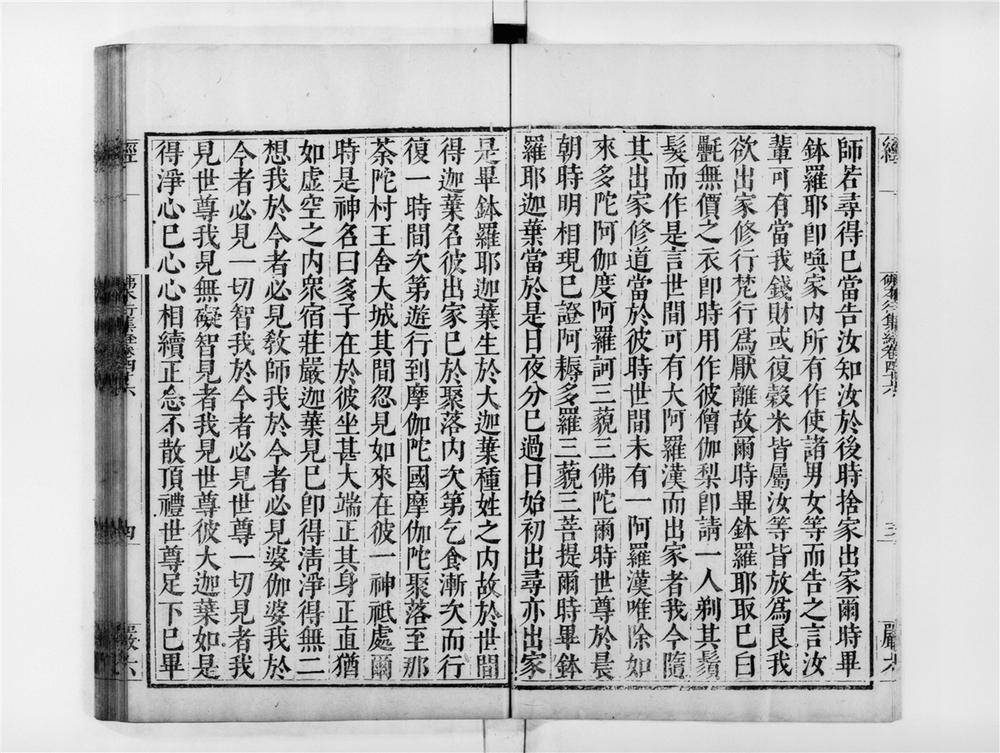 師若尋得已當告汝知汝於後時捨家出家爾時畢
鉢羅耶卽喚家內所有作使諸男女等而告之言汝
輩可有當我錢財或復穀米皆屬汝等皆放爲良我
欲出家修行梵行爲厭離故爾時畢鉢羅耶取已白
㲲無價之衣卽時用作彼僧伽梨卽請一人剃其鬚
髮而作是言世間可有大阿羅漢而出家者我今隨
其出家修道當於彼時世間未有一阿羅漢唯除如
來多陀阿伽度阿羅訶三藐三佛陀爾時世尊於晨
朝時明相現已證阿耨多羅三藐三菩提爾時畢鉢
羅耶迦葉當於是日夜分已過日始初出尋亦出家
是畢鉢羅耶迦葉生於大迦葉種姓之內故於世間
得迦葉名彼出家已於聚落內次第乞食漸次而行
復一時間次第遊行到摩伽陀國摩伽陀聚落至那
荼陀村王舍大城其間忽見如來在彼一神祇處爾
時是神名曰多子在於彼坐甚大端正其身正直猶
如虛空之內衆宿莊嚴迦葉見已卽得淸淨得無二
想我於今者必見敎師我於今者必見婆伽婆我於
今者必見一切智我於今者必見世尊一切見者我
見世尊我見無礙智見者我見世尊彼大迦葉如是
得淨心已心心相續正念不散頂禮世尊足下已畢
經
佛本行集經卷四十六
三
嚴六
經
佛本行集經卷四十六
四
嚴六